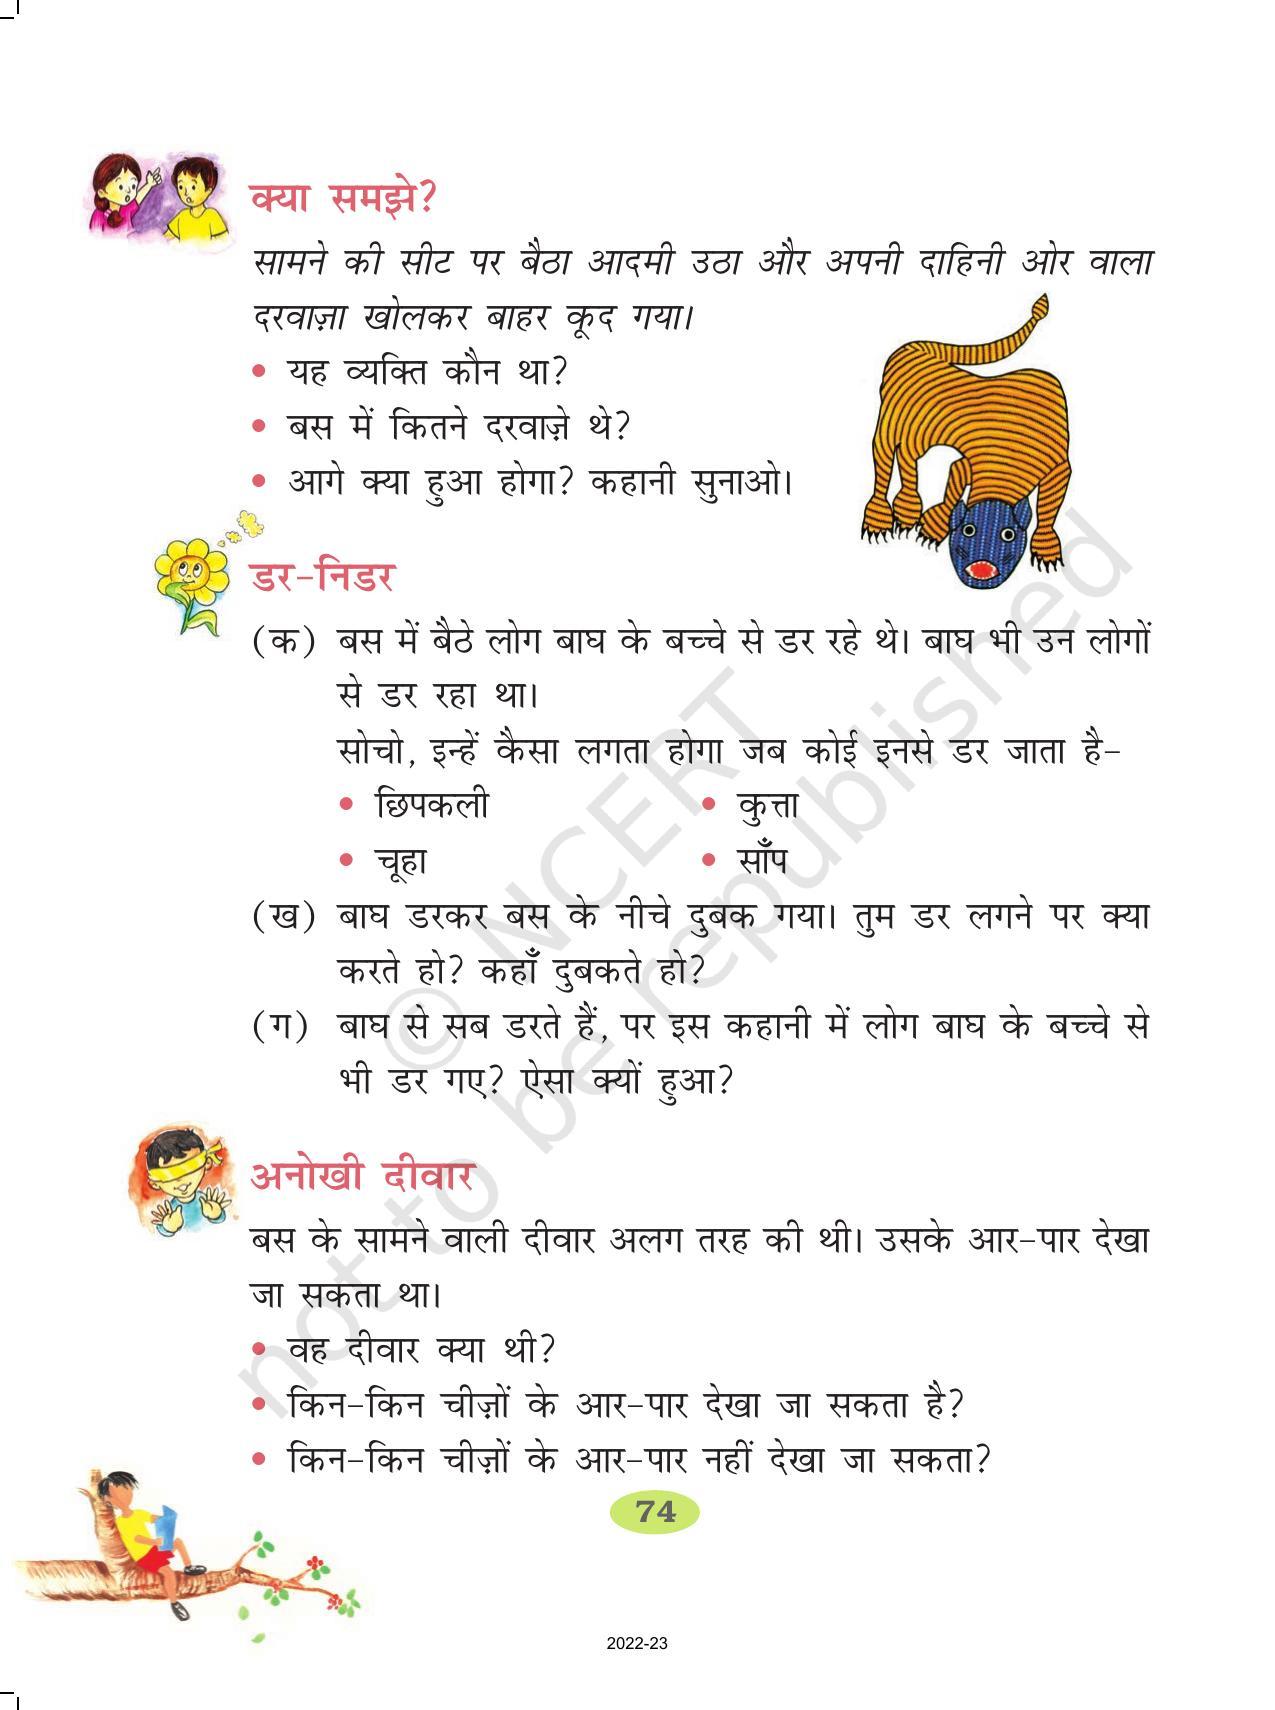 क्या समझे?
सामने की सीट पर बैठा आदमी उठा और अपनी दाहिनी ओर वाला
दरवाज़ा खोलकर बाहर कूद गया।
• यह व्यक्ति कौन था?
• बस में कितने दरवाज़े थे?
• आगे क्या हुआ होगा? कहानी सुनाओ।
डर–निडर
(क) बस में बैठे लोग बाघ के बच्चे से डर रहे थे। बाघ भी उन लोगों
से डर रहा था।
सोचो, इन्हें कैसा लगता होगा जब कोई इनसे डर जाता है–
• छिपकली • कुत्ता
• चूहा • साँप
(ख) बाघ डरकर बस के नीचे दुबक गया। तुम डर लगने पर क्या
करते हो? कहाँ दुबकते हो?
(ग) बाघ से सब डरते हैं, पर इस कहानी में लोग बाघ के बच्चे से
भी डर गए? ऐसा क्यों हुआ?
अनोखी दीवार
बस के सामने वाली दीवार अलग तरह की थी। उसके आर–पार देखा
जा सकता था।
• वह दीवार क्या थी?
• किन–किन चीज़ों के आर–पार देखा जा सकता है?
• किन–किन चीज़ों के आर–पार नहीं देखा जा सकता?
74
2022-23
© NCERT
not to be republished